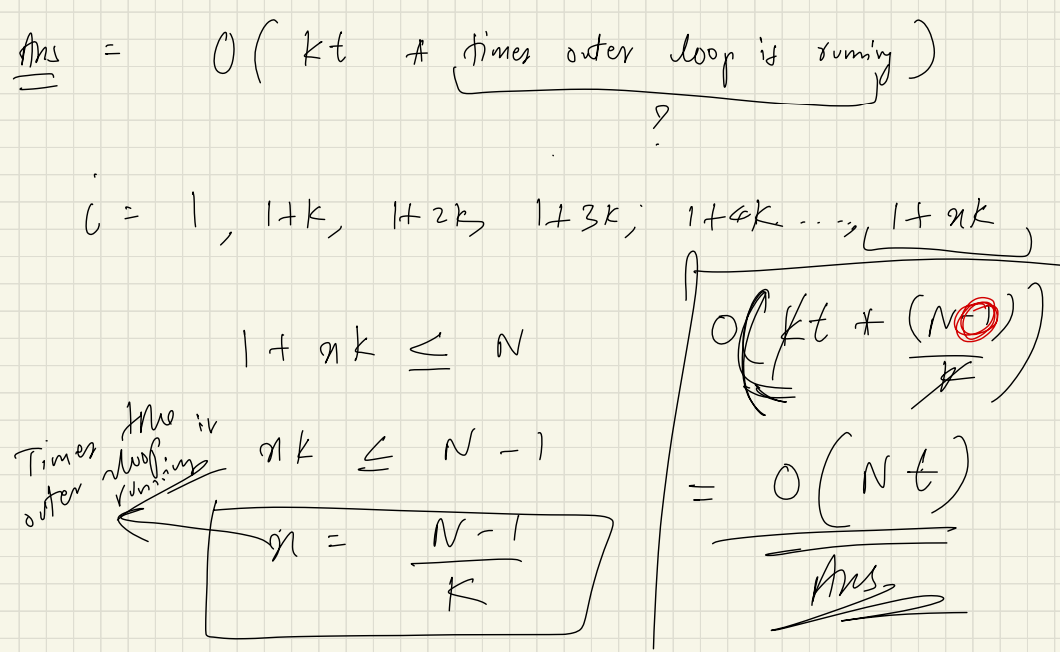 Ans = O( kt * times outer loop is runing )
?
i = 1, 1+k, 1+2k, 1+3k, 1+4k ...., 1+xk
1 + xk ≤ N
xk ≤ N - 1
Times outer loop is running
x = N-1 / K
O( kt * (N-1) / k )
= O( N t )
Ans.